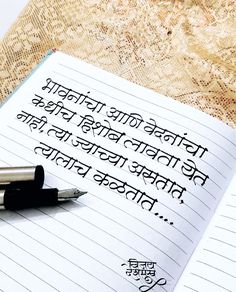 भावनांचा आणि वेदनांचा
कधीच हिशोब लावता येत
नाही, त्या ज्याच्या असतात,
त्यालाच कळतात....